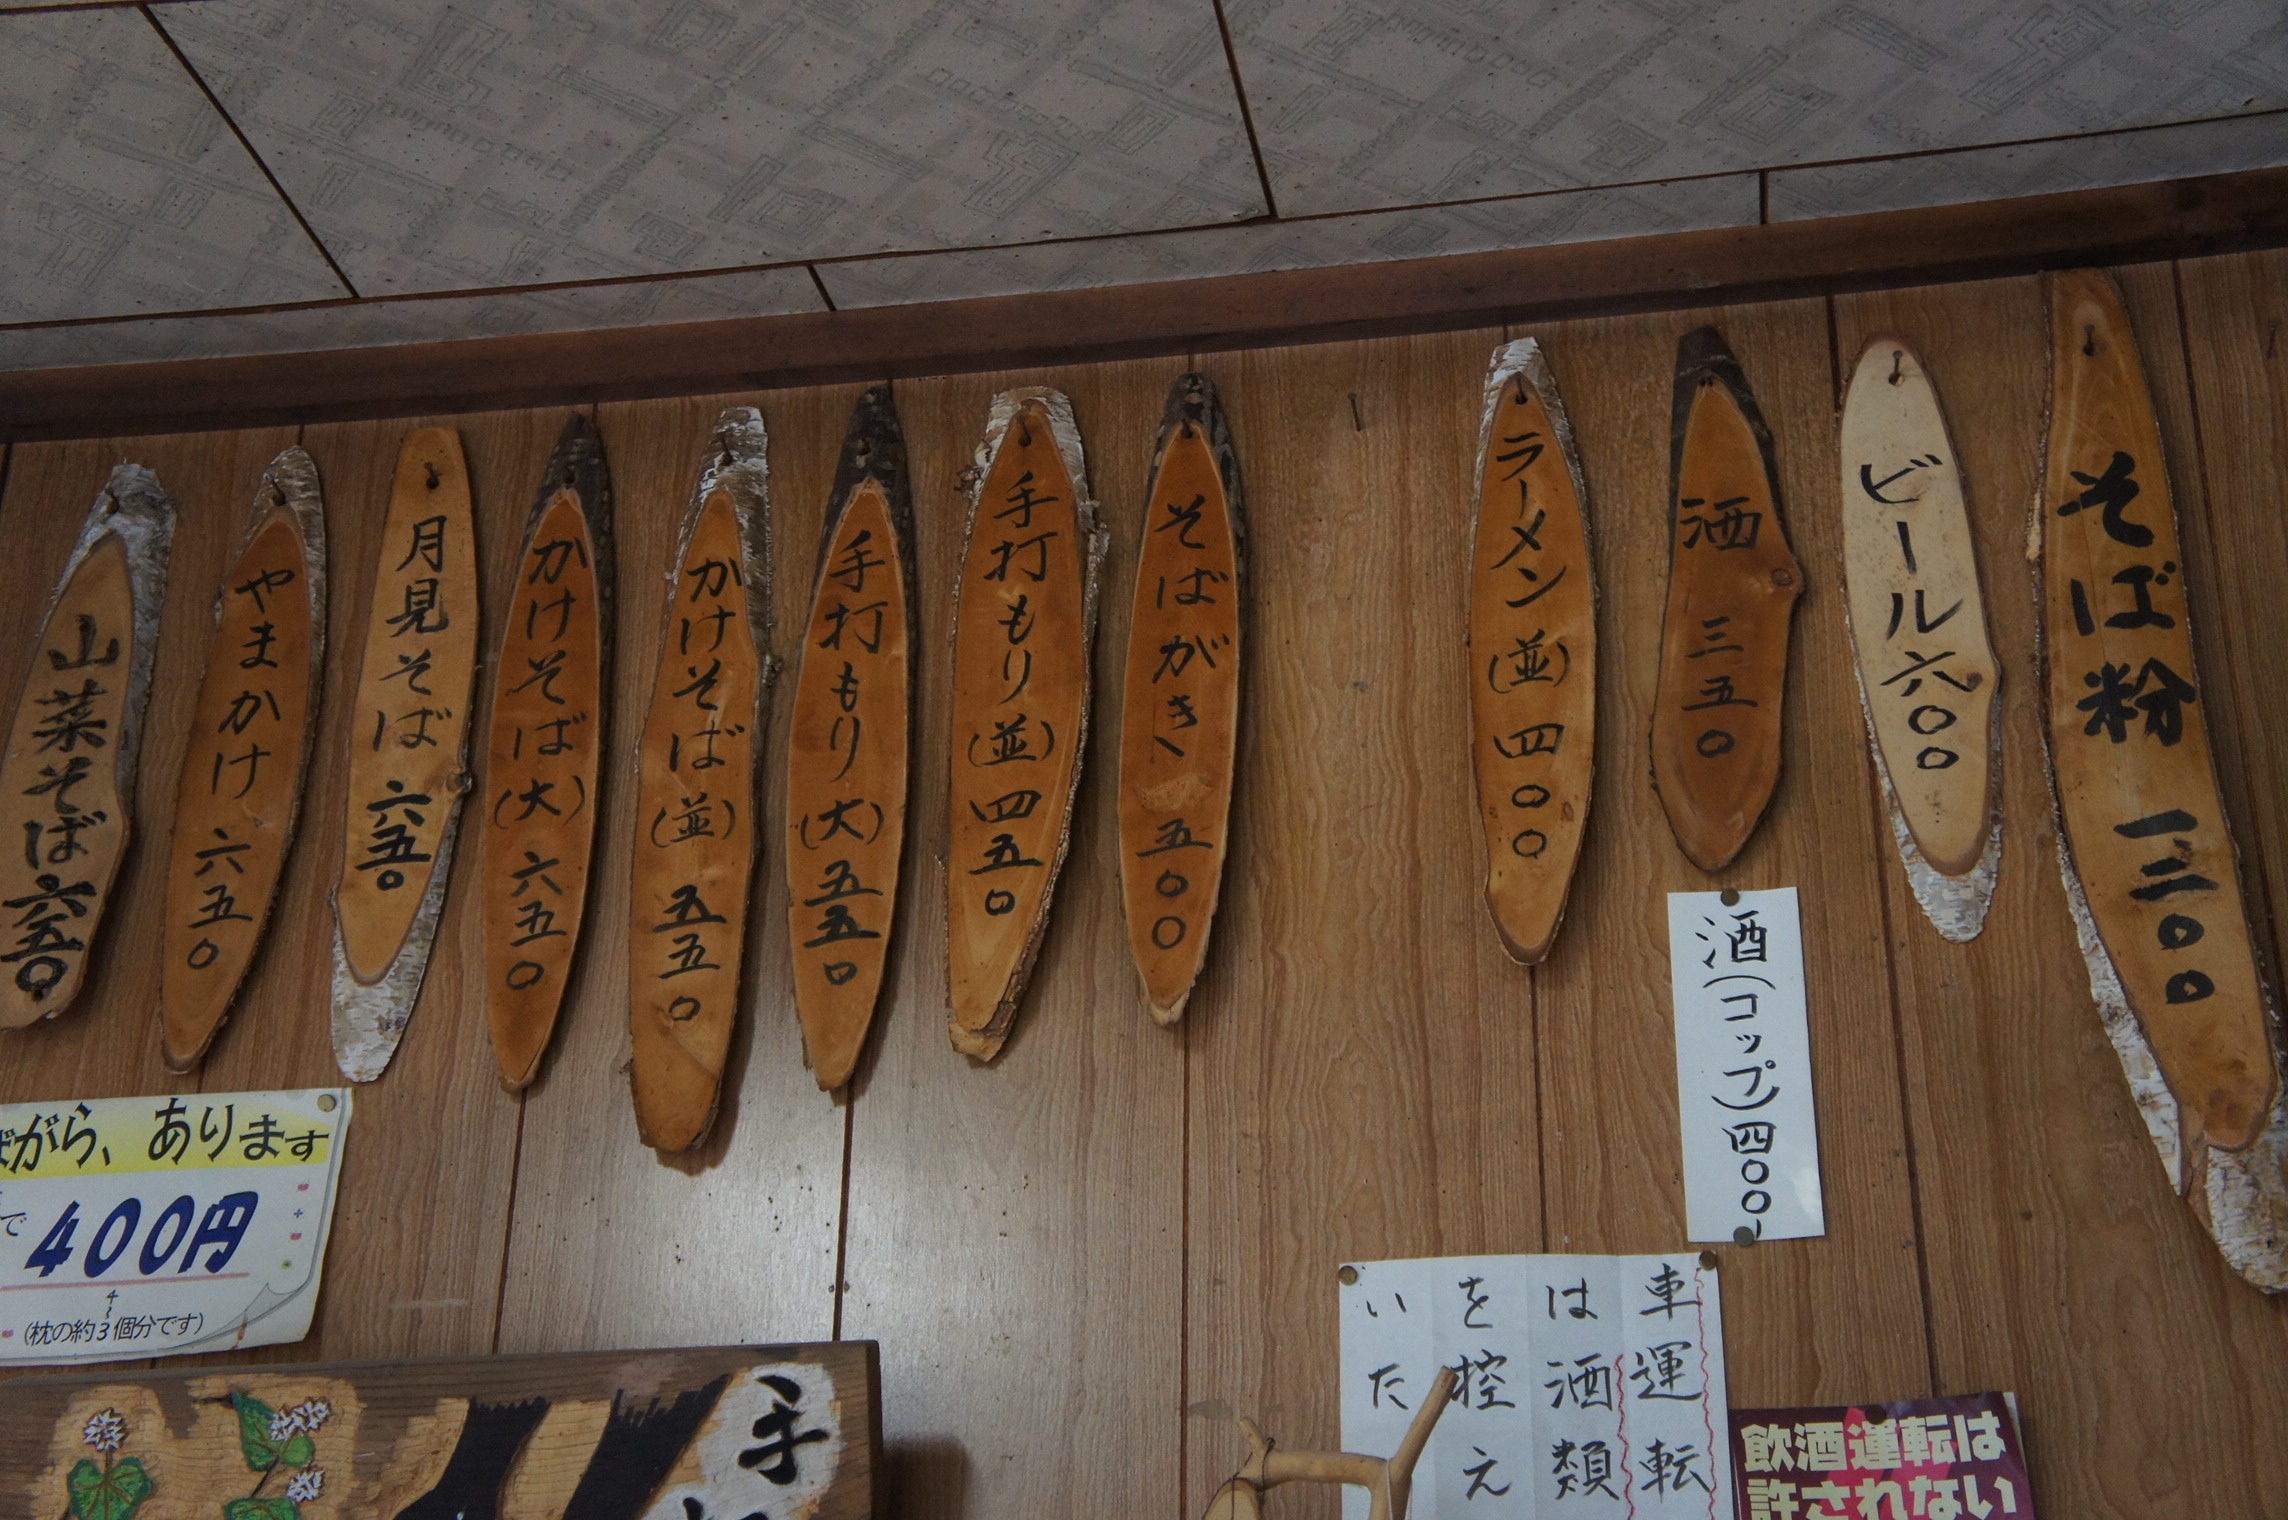 そば粉 一二〇〇
ビール 六〇〇
酒 三五〇
ラーメン(並) 四〇〇
そばがき 五〇〇
手打もり(並) 四五〇
手打もり(大) 五五〇
かけそば(並) 五五〇
かけそば(大) 六五〇
月見そば 六五〇
やまかけ 六五〇
山菜そば 六五〇
酒(コップ)四〇〇
車運転
は酒類
を控え
いた
飲酒運転は
許されない
ばがら、あります
で 400円
(枕の約3~4個分です)
手